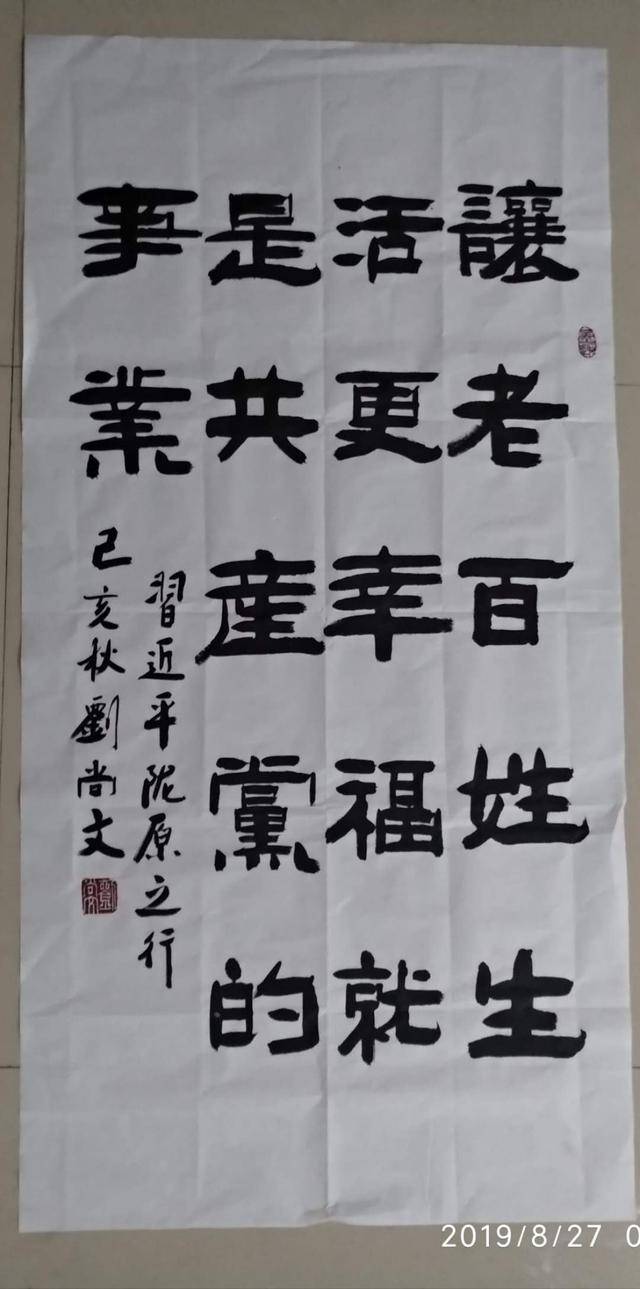 讓老百姓生
活更幸福就
是共產黨的
事業
習近平陇原之行
己亥秋劉尚文
2019/8/27